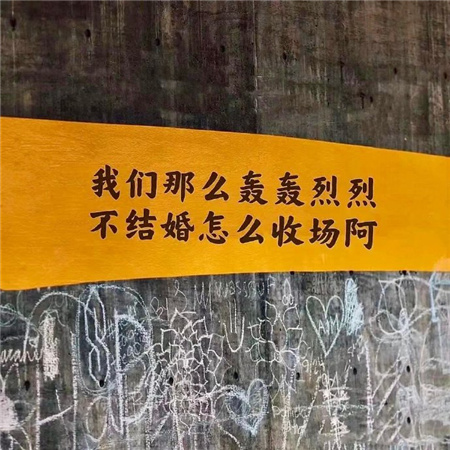 我们那么轰轰烈烈
不结婚怎么收场阿